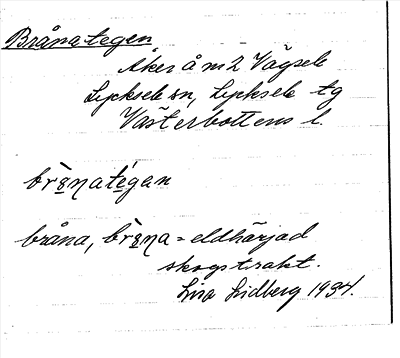 Brånategen
Åker å m 2 Vägsele
Lycksele sn, Lycksele tg
Västerbottens l.
br&#39;ånatégan
bråna, bråna = eldhärjad
skogstrakt.
Lisa Lidberg 1934.